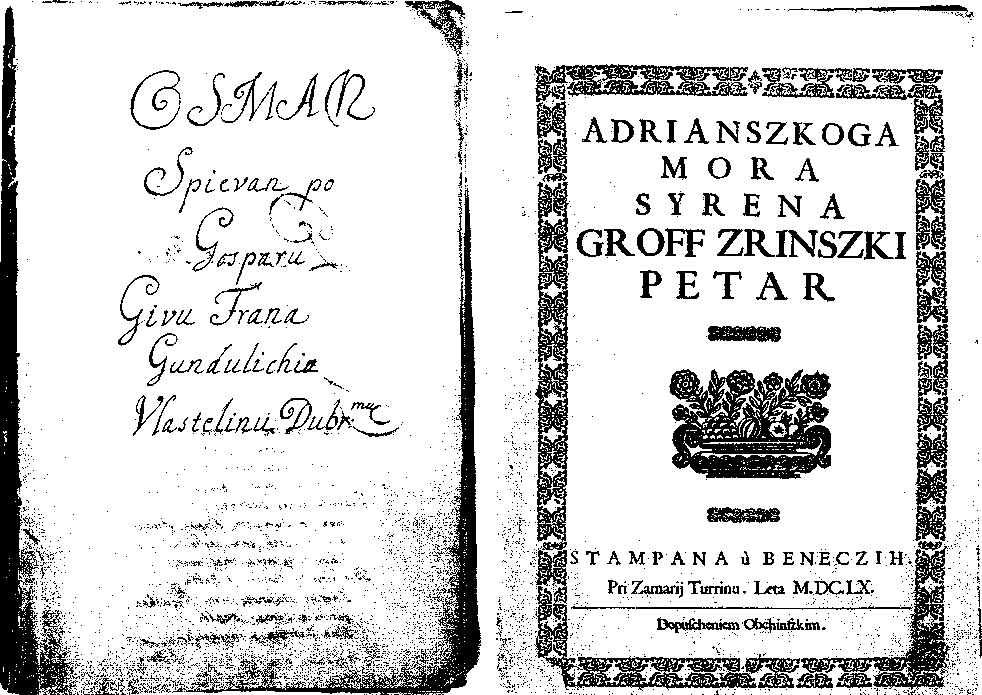 OSMAN
Spievan po
Gosparu
Givu Frana
Gundulichia
Vlastelinu Dubr.mu
ADRIANSZKOGA
MORA
SYRENA
GROFF ZRINSZKI
PETAR
STAMPANA ù BENECZIH.
Pri Zamarij Turrinu. Leta M.DC.LX.
Dopuſcheniem Obchinſzkim.